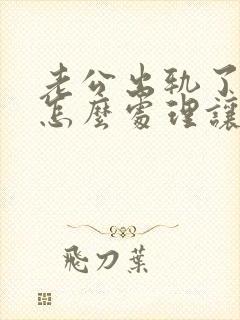 老公出軌了
怎麼處理讓
飛刀葉